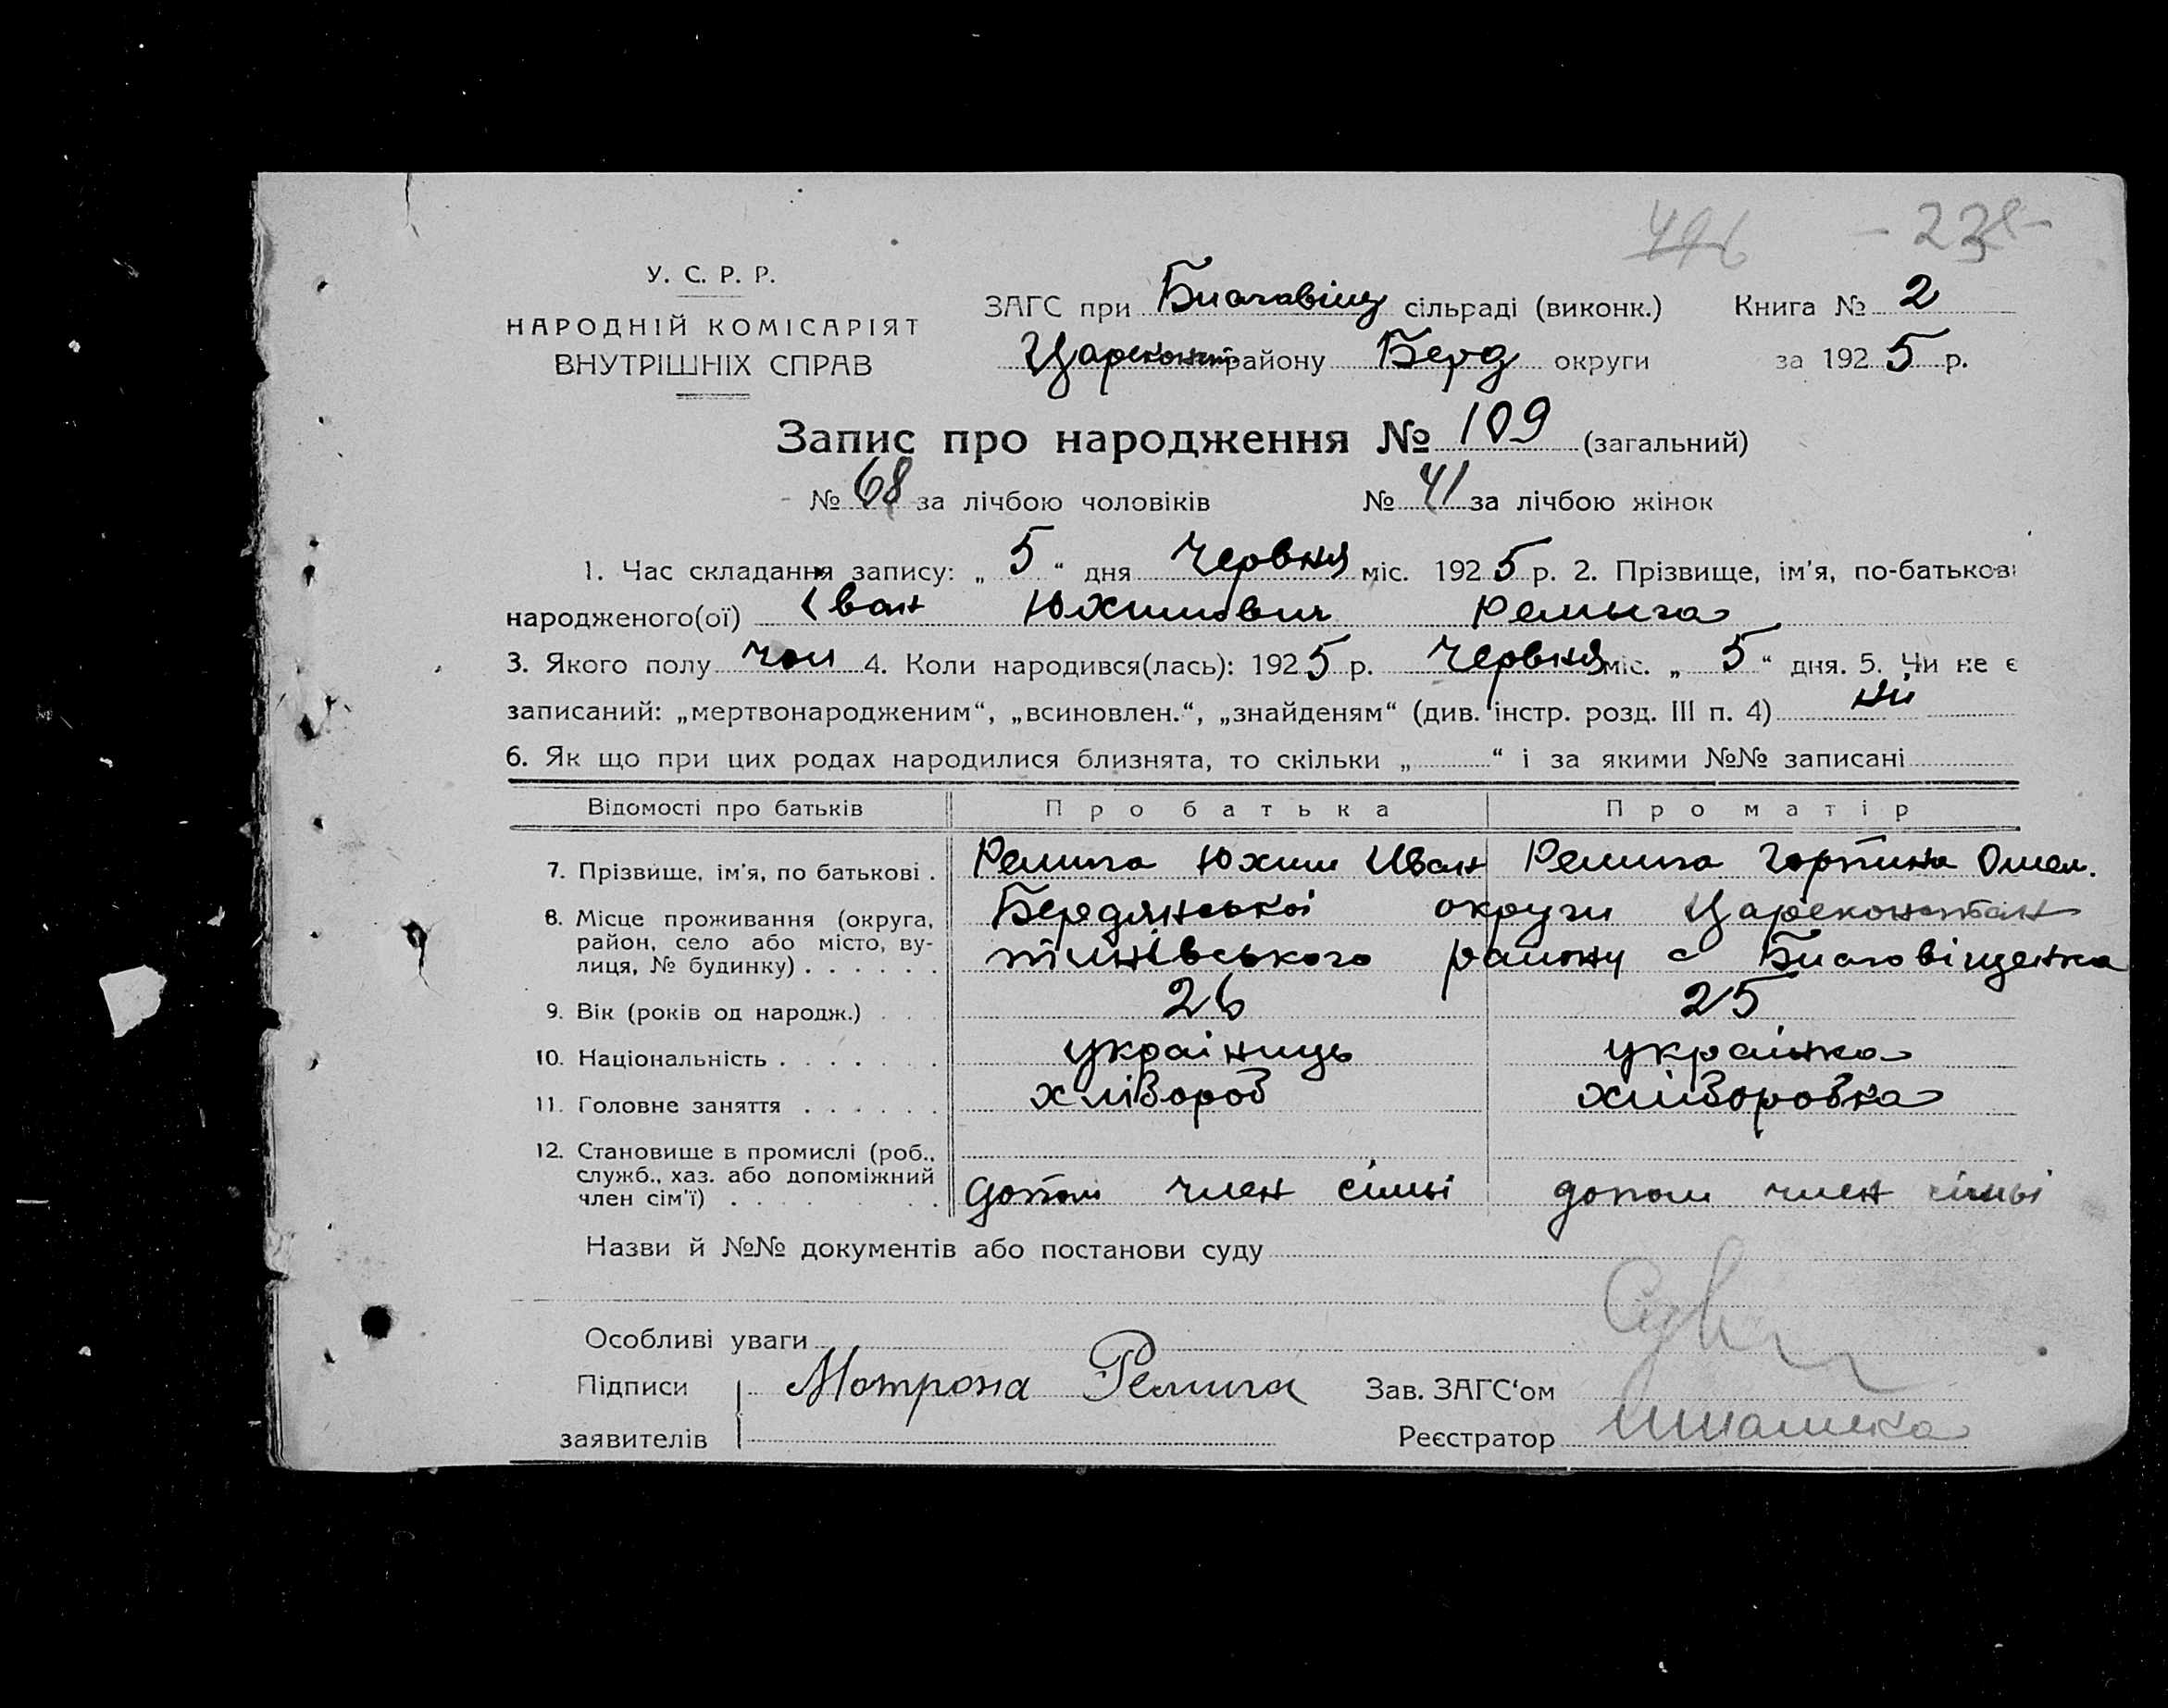 496 - 238 -
У. С. Р. Р.
НАРОДНІЙ КОМІСАРІЯТ
ВНУТРІШНІХ СПРАВ
ЗАГС при Благавіщ сільраді (виконк.) Книга № 2
Цареконст району Берд округи за 1925 р.
Запис про народження № 109 (загальний)
№ 68 за лічбою чоловіків № 41 за лічбою жінок
1. Час складання запису: „ 5 “ дня Червня міс. 1925 р. 2. Прізвище, ім'я, по-батькові
народженого(ої) Іван Юхимович Ремыга
3. Якого полу чол 4. Коли народився(лась): 1925 р. Червня міс. „ 5 “ дня. 5. Чи не є
записаний: „мертвонародженим“, „всиновлен.“, „знайденям“ (див. інстр. розд. III п. 4) ні
6. Як що при цих родах народилися близнята, то скільки „ “ і за якими №№ записані
Відомості про батьків Про батька Про матір
7. Прізвище, ім'я, по батькові . Ремига Юхим Иван Ремига Горпина Омел.
8. Місце проживання (округа, район, село або місто, вулиця, № будинку) . . . . . . Бердянської округи Цареконстан
тинівського району с Благовіщенка
9. Вік (років од народж.) . . . 26 25
10. Національність . . . . . . . україниць українка
11. Головне заняття . . . . . . хлібороб хліборобка
12. Становище в промислі (роб., служб., хаз. або допоміжний член сім'ї) . . . . . . допом член сімьі допом член сімьі
Назви й №№ документів або постанови суду
Особливі уваги
Підписи Мотрона Ремига Зав. ЗАГС'ом
заявителів Реєстратор